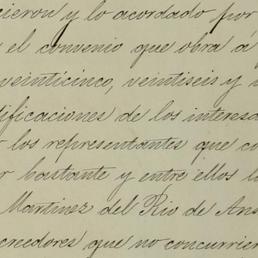 cieron y lo acordado por
el convenio que obra á
veinticinco, veintiseis y
ificaciones de los interesa
los representantes que co
bastante y entre ellos la
Martinez del Rio de Ans
creedores que no concurrier